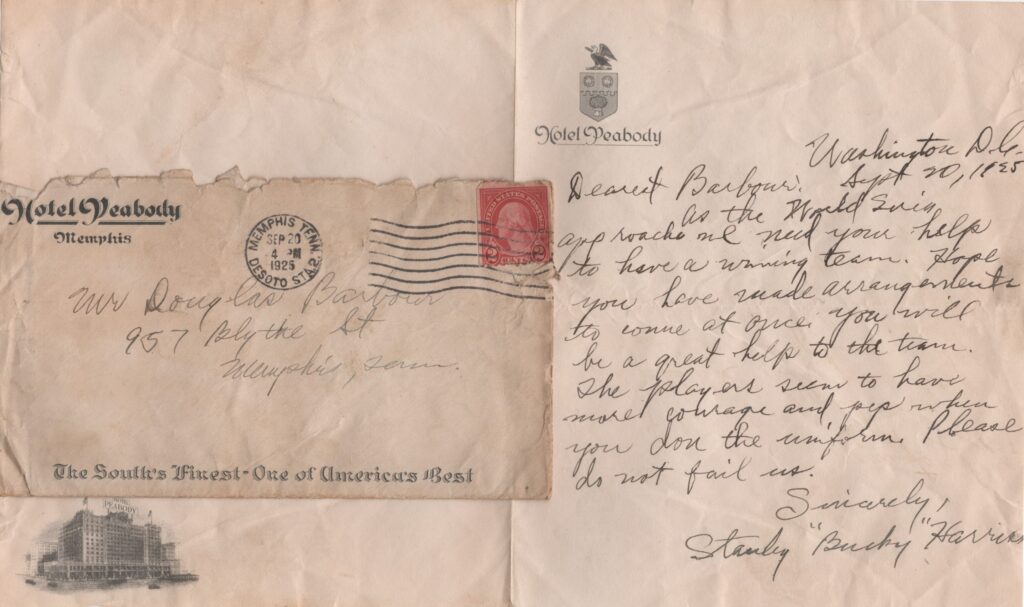 Hotel Peabody
Memphis
MEMPHIS TENN.
SEP 20
4 PM
1925
DESOTO STA.
UNITED STATES POSTAGE
2 CENTS 2
Mr Douglas Barbour
957 Blythe St
Memphis, Tenn.
The South's Finest-One of America's Best
HOTEL
PEABODY
Hotel Peabody
Washington D.C.
Sept 20, 1925
Dearest Barbour.
As the World Series
approache we need your help
to have a winning team. Hope
you have made arrangements
to come at once. you will
be a great help to the team.
The players seem to have
more courage and pep when
you don the uniform. Please
do not fail us.
Sincerely,
Stanley "Bucky" Harris